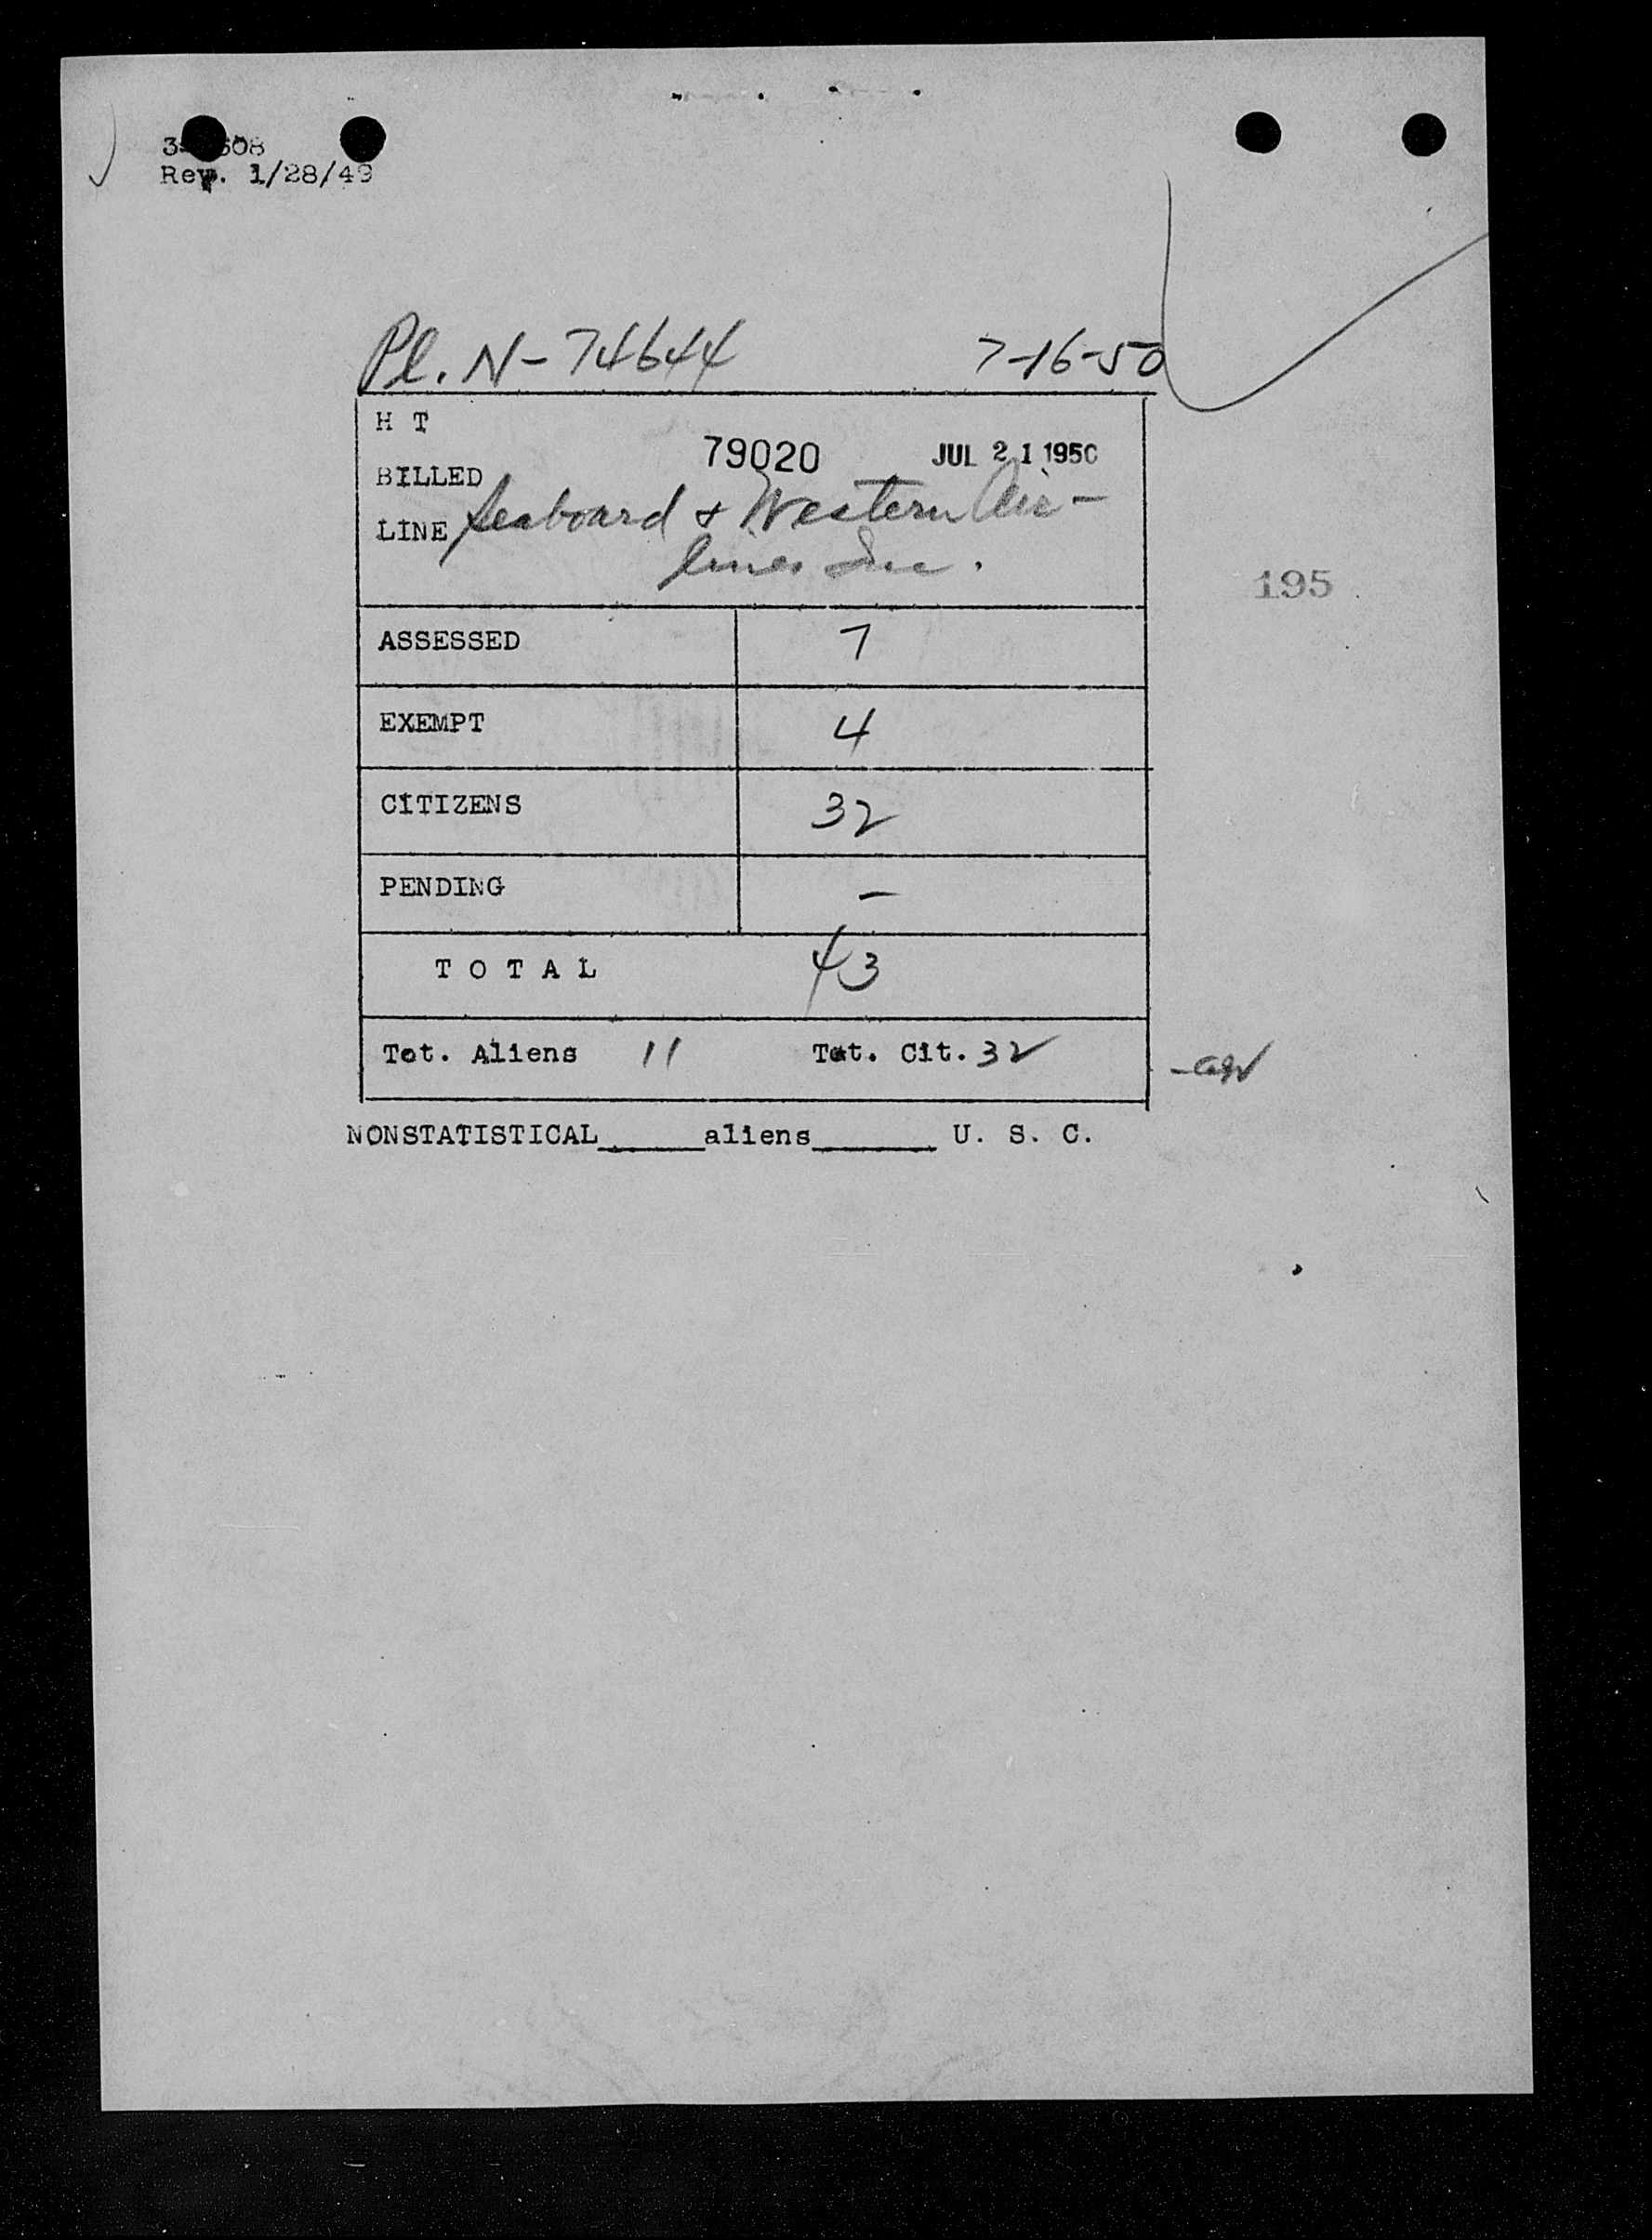 Rev. 1/28/49
Pl. N-74644 7-16-50
H T
79020 JUL 21 1950
BILLED
LINE Seaboard & Western Air-
lines Inc.
195
ASSESSED 7
EXEMPT 4
CITIZENS 32
PENDING -
TOTAL 43
Tot. Aliens 11 Tot. Cit. 32
NONSTATISTICAL_____aliens______ U. S. C.